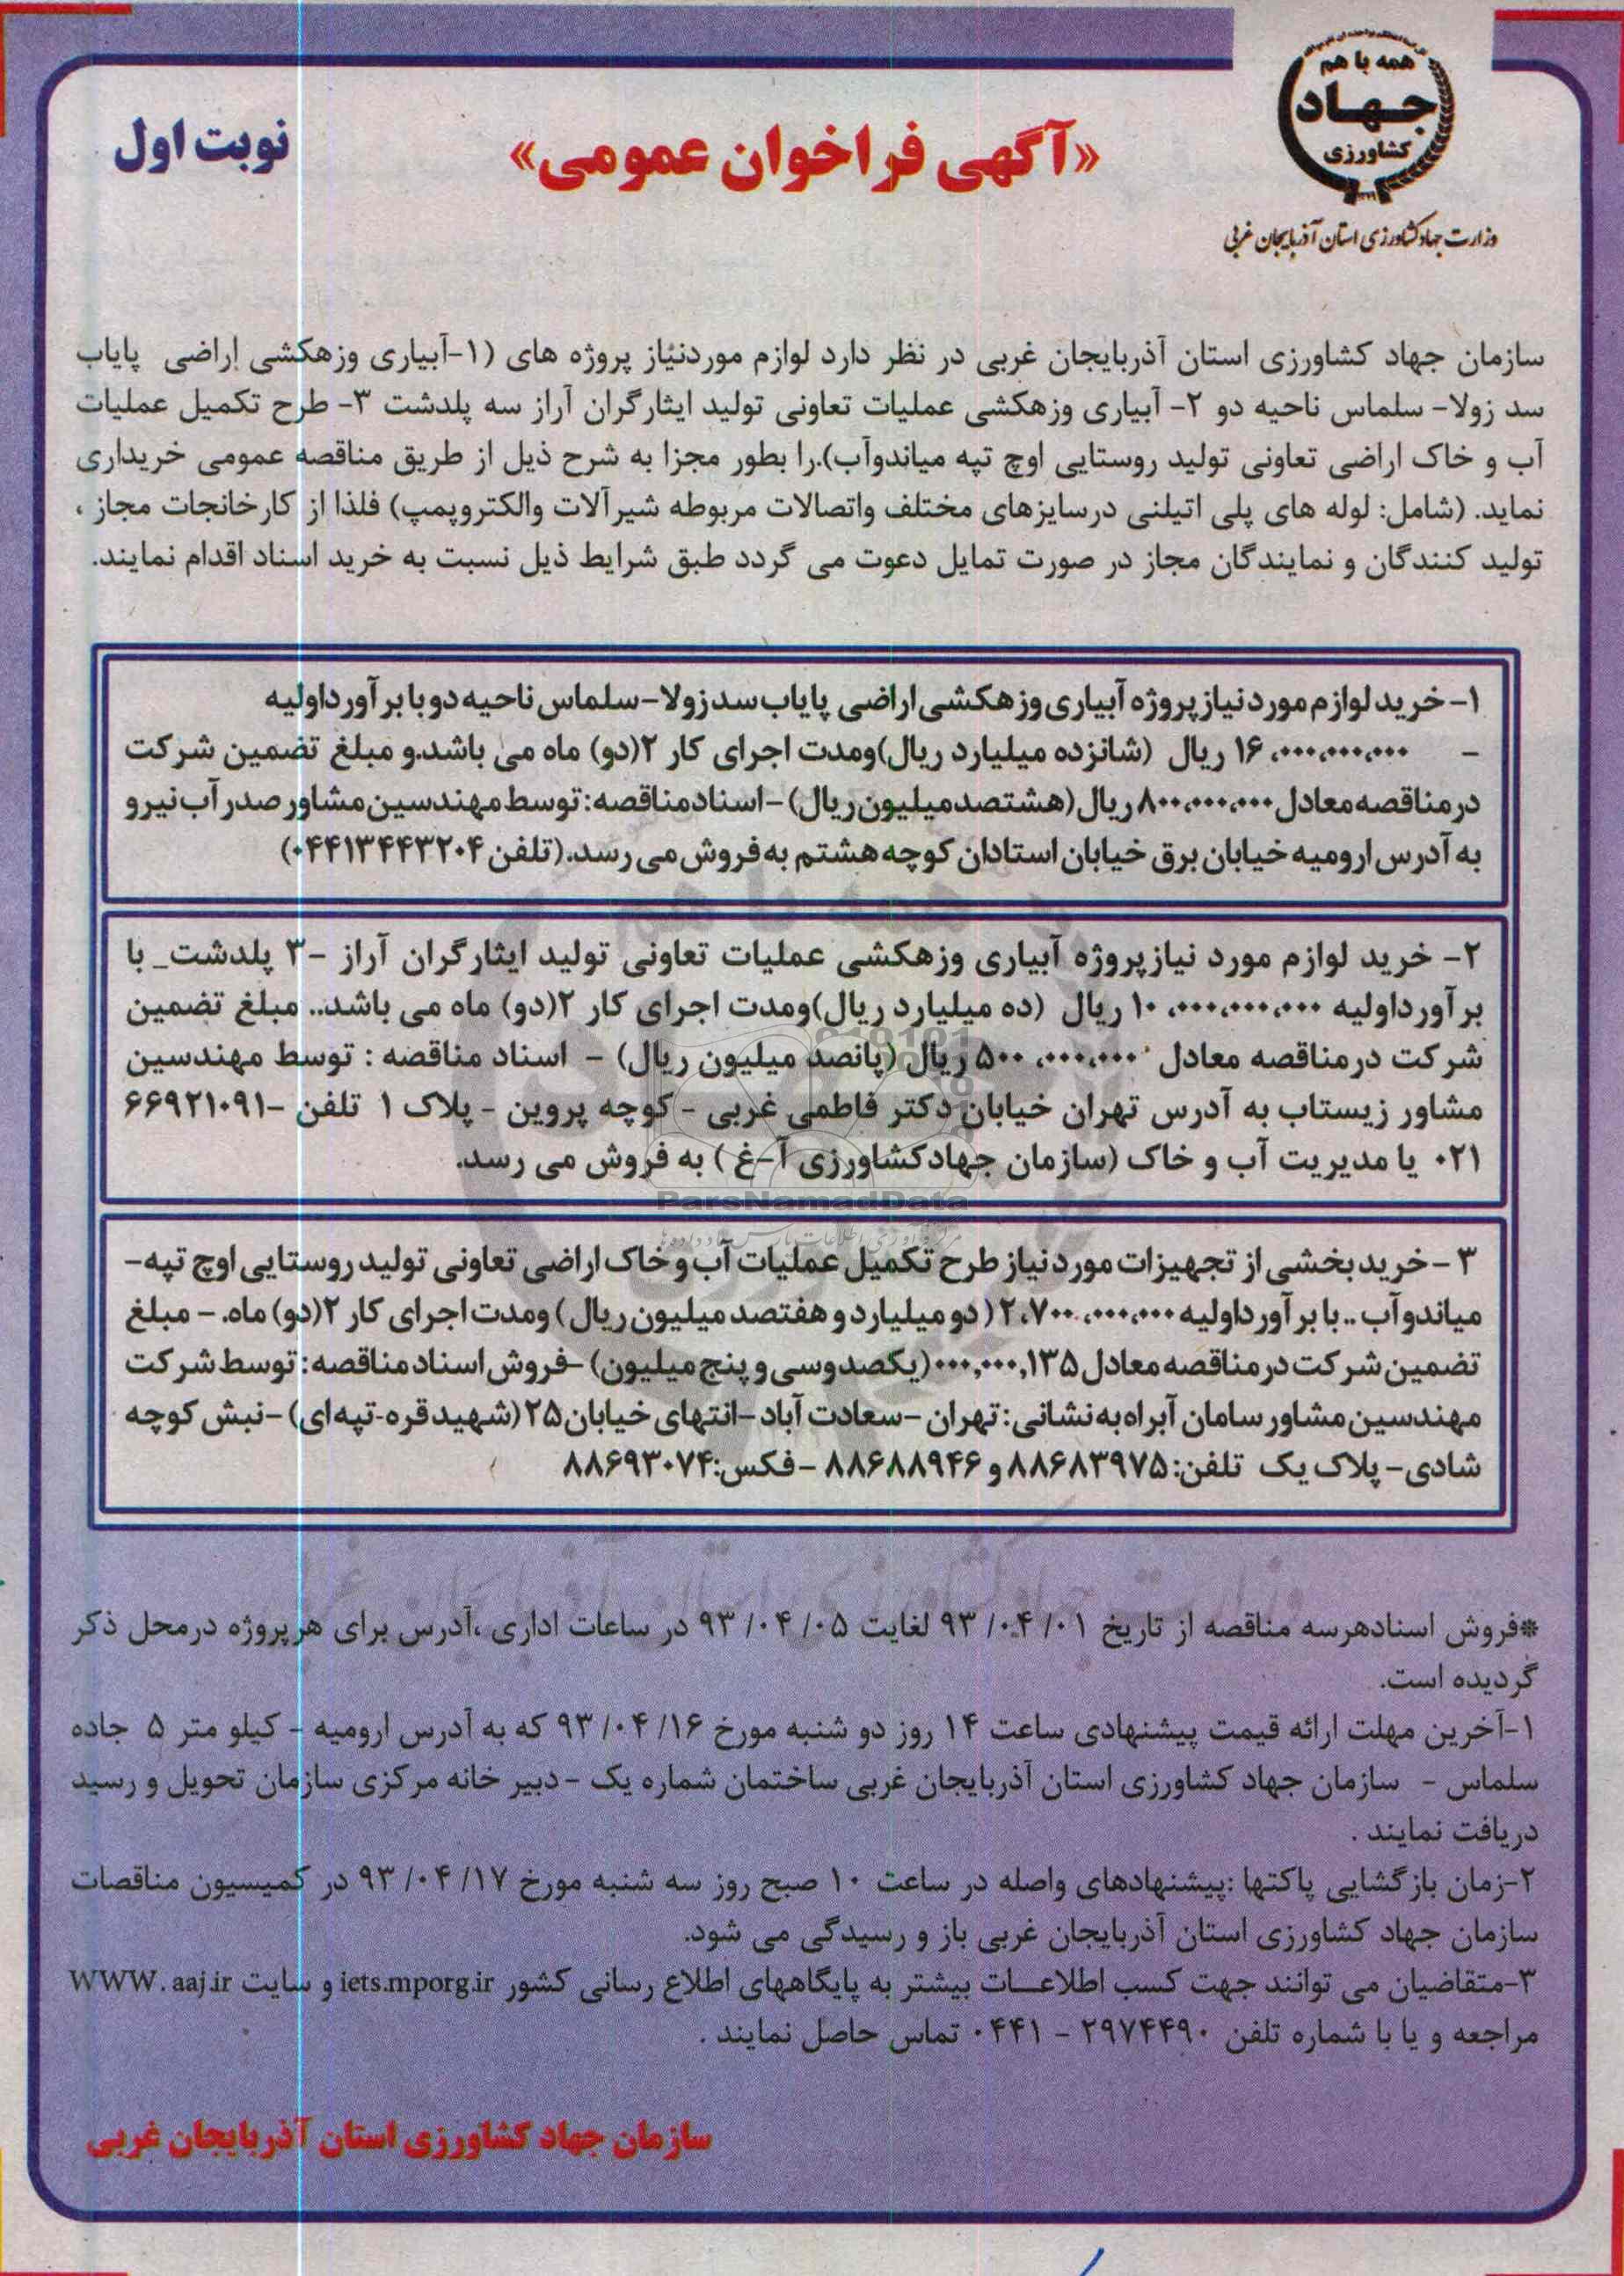 همه با هم
جهاد
کشاورزی
وزارت جهاد کشاورزی استان آذربایجان غربی
«آگهی فراخوان عمومی»
نوبت اول
سازمان جهاد کشاورزی استان آذربایجان غربی در نظر دارد لوازم موردنیاز پروژه های (۱-آبیاری وزهکشی اراضی پایاب
سد زولا- سلماس ناحیه دو ۲- آبیاری وزهکشی عملیات تعاونی تولید ایثارگران آراز سه پلدشت ۳- طرح تکمیل عملیات
آب و خاک اراضی تعاونی تولید روستایی اوچ تپه میاندوآب).را بطور مجزا به شرح ذیل از طریق مناقصه عمومی خریداری
نماید. (شامل: لوله های پلی اتیلنی درسایزهای مختلف واتصالات مربوطه شیرآلات والکتروپمپ) فلذا از کارخانجات مجاز ،
تولید کنندگان و نمایندگان مجاز در صورت تمایل دعوت می گردد طبق شرایط ذیل نسبت به خرید اسناد اقدام نمایند.
۱- خرید لوازم مورد نیاز پروژه آبیاری وزهکشی اراضی پایاب سد زولا-سلماس ناحیه دو با برآورداولیه
- ۱۶،۰۰۰،۰۰۰،۰۰۰ ریال (شانزده میلیارد ریال)ومدت اجرای کار ۲(دو) ماه می باشد.و مبلغ تضمین شرکت
درمناقصه معادل ۸۰۰،۰۰۰،۰۰۰ ریال (هشتصد میلیون ریال) -اسناد مناقصه: توسط مهندسین مشاور صدر آب نیرو
به آدرس ارومیه خیابان برق خیابان استادان کوچه هشتم به فروش می رسد.(تلفن ۰۴۴۱۳۴۴۳۲۰۴)
۲- خرید لوازم مورد نیازپروژه آبیاری وزهکشی عملیات تعاونی تولید ایثارگران آراز -۳ پلدشت_ با
برآورداولیه ۱۰،۰۰۰،۰۰۰،۰۰۰ ریال (ده میلیارد ریال)ومدت اجرای کار ۲(دو) ماه می باشد.. مبلغ تضمین
شرکت درمناقصه معادل ۵۰۰،۰۰۰،۰۰۰ ریال (پانصد میلیون ریال) - اسناد مناقصه : توسط مهندسین
مشاور زیستاب به آدرس تهران خیابان دکتر فاطمی غربی - کوچه پروین - پلاک ۱ تلفن ۶۶۹۲۱۰۹۱-
۰۲۱ یا مدیریت آب و خاک (سازمان جهادکشاورزی آ-غ ) به فروش می رسد.
ParsNamadData
۳ -خرید بخشی از تجهیزات مورد نیاز طرح تکمیل عملیات آب و خاک اراضی تعاونی تولید روستایی اوچ تپه-
میاندوآب .. با برآورداولیه ۲،۷۰۰،۰۰۰،۰۰۰ ( دو میلیارد و هفتصد میلیون ریال ) ومدت اجرای کار ۲(دو) ماه. - مبلغ
تضمین شرکت درمناقصه معادل ۱۳۵,۰۰۰,۰۰۰ (یکصدوسی و پنج میلیون) -فروش اسناد مناقصه: توسط شرکت
مهندسین مشاور سامان آبراه به نشانی: تهران -سعادت آباد -انتهای خیابان ۲۵ (شهید قره-تپه ای) -نبش کوچه
شادی- پلاک یک تلفن: ۸۸۶۸۳۹۷۵ و ۸۸۶۸۸۹۴۶ -فکس:۸۸۶۹۳۰۷۴
*فروش اسنادهرسه مناقصه از تاریخ ۰۱/ ۰۴/ ۹۳ لغایت ۰۵/ ۰۴/ ۹۳ در ساعات اداری ،آدرس برای هرپروژه درمحل ذکر
گردیده است.
۱-آخرین مهلت ارائه قیمت پیشنهادی ساعت ۱۴ روز دو شنبه مورخ ۱۶/ ۰۴/ ۹۳ که به آدرس ارومیه - کیلو متر ۵ جاده
سلماس - سازمان جهاد کشاورزی استان آذربایجان غربی ساختمان شماره یک -دبیر خانه مرکزی سازمان تحویل و رسید
دریافت نمایند .
۲-زمان بازگشایی پاکتها :پیشنهادهای واصله در ساعت ۱۰ صبح روز سه شنبه مورخ ۱۷/ ۰۴/ ۹۳ در کمیسیون مناقصات
سازمان جهاد کشاورزی استان آذربایجان غربی باز و رسیدگی می شود.
۳-متقاضیان می توانند جهت کسب اطلاعـــات بیشتر به پایگاههای اطلاع رسانی کشور iets.mporg.ir و سایت WWW. aaj.ir
مراجعه و یا با شماره تلفن ۲۹۷۴۴۹۰ - ۰۴۴۱ تماس حاصل نمایند .
سازمان جهاد کشاورزی استان آذربایجان غربی